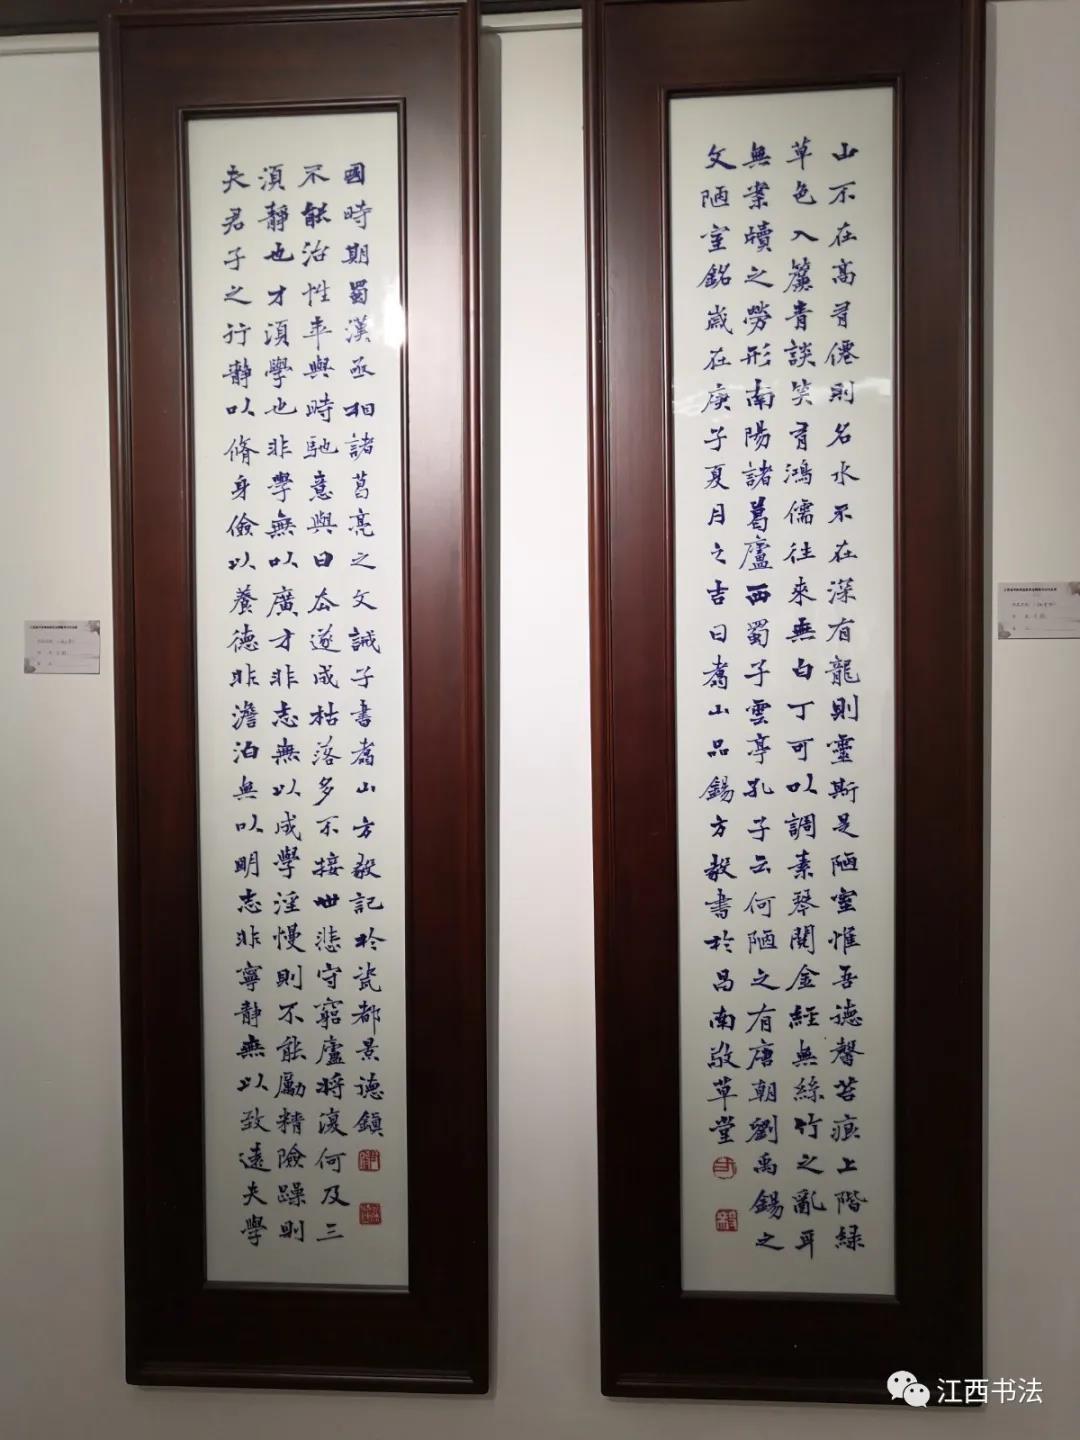 山不在高有僊則名水不在深有龍則靈斯是陋室惟吾德馨苔痕上階緑
草色入簾青談笑有鴻儒往來無白丁可以調素琴閱金經無絲竹之亂耳
無案牘之勞形南陽諸葛廬西蜀子雲亭孔子云何陋之有唐朝劉禹錫之
文陋室銘歲在庚子夏月之吉日山品錫方毅書於昌南敬草堂
夫君子之行靜以脩身儉以養德非澹泊無以明志非寧靜無以致遠夫學
須靜也才須學也非學無以廣才非志無以成學淫慢則不能勵精險躁則
不能治性年與時馳意與日去遂成枯落多不接世悲守窮廬將復何及三
國時期蜀漢丞相諸葛亮之文誡子書山方毅記於瓷都景德鎮
江西书法